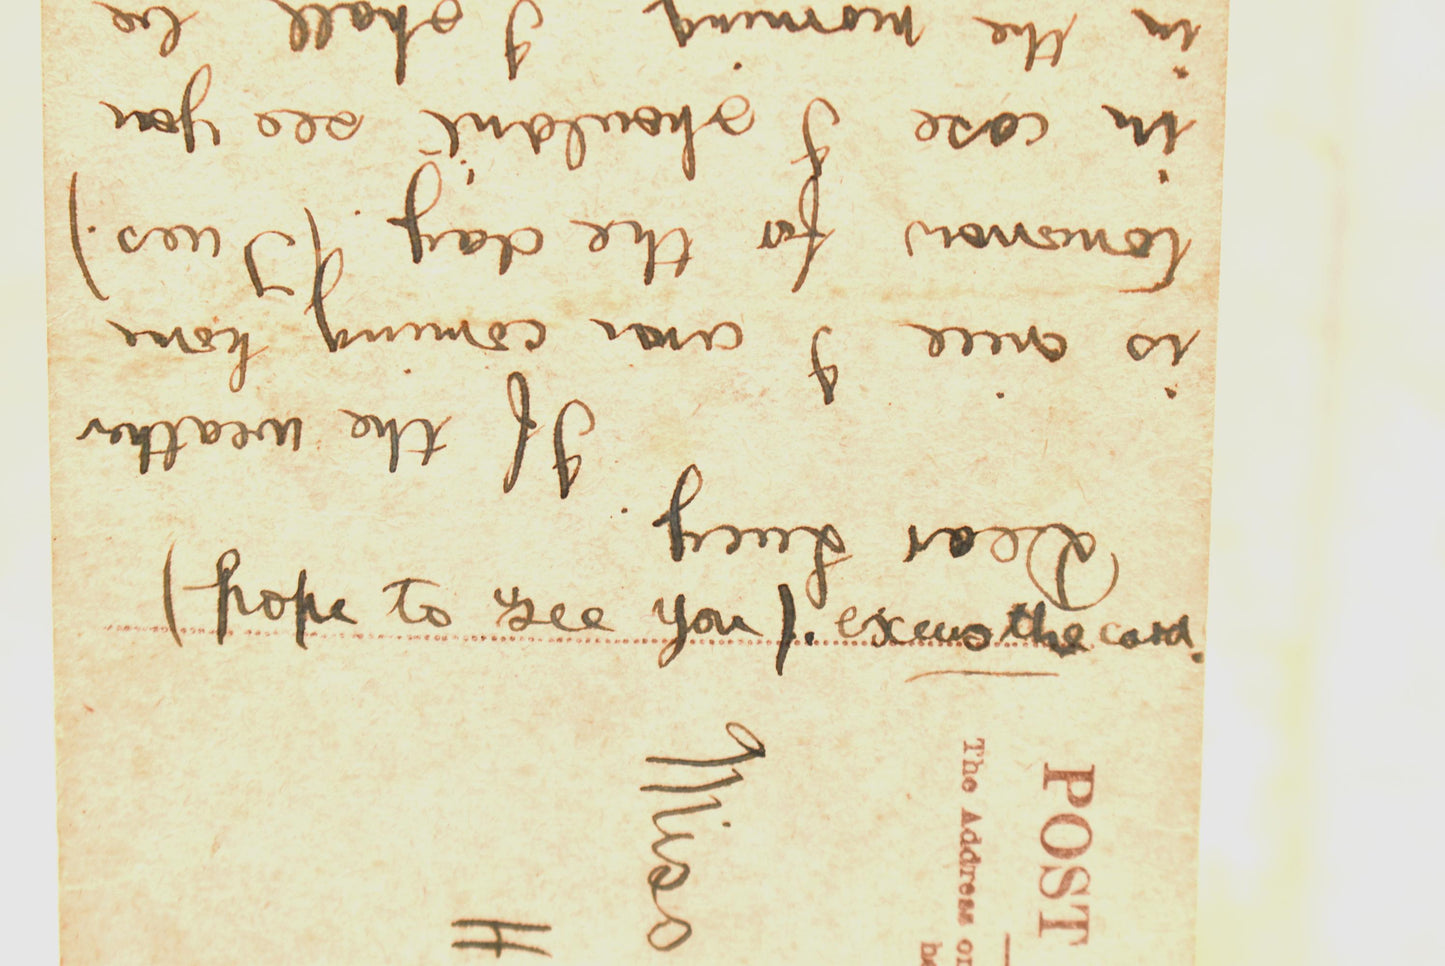 Dear Lucy
If the weather
is nice I am coming home
tomorrow for the day. (Tues.)
in case I shouldn't see you
in the morning I shall be
(hope to see you) excuse the card.
POST
The Address on
Miss
H